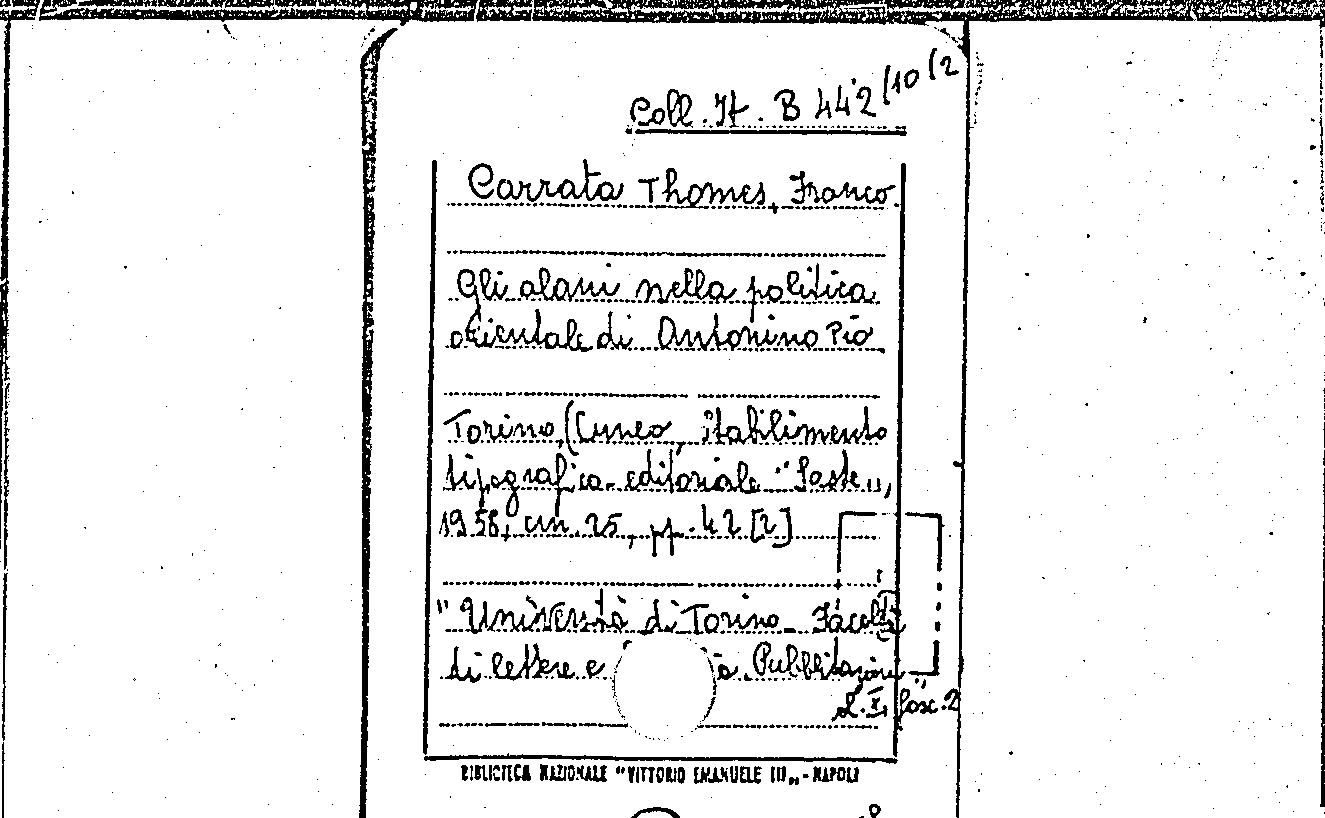 Coll. It. B 442/10/2
Carrata Thomes, Franco
Gli alani nella politica
orientale di Antonino Pio
Torino, (Cuneo, stabilimento
tipografico-editoriale "Saste",,
1958, cm. 25, pp. 42 [2]
"Università di Torino. Facoltà
di lettere e ia. Pubblicazioni"
vol. X, fasc. 2
BIBLIOTECA NAZIONALE "VITTORIO EMANUELE III„ - NAPOLI